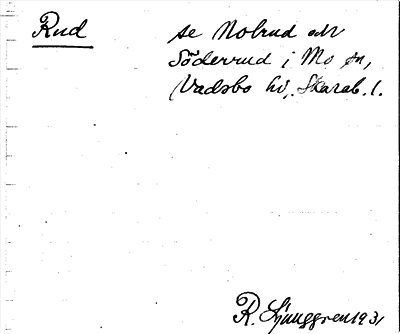 Rud se Nolrud och
Söderrud i Mo sn,
Vadsbo hd, Skarab. l.
R. Ljunggren 1931